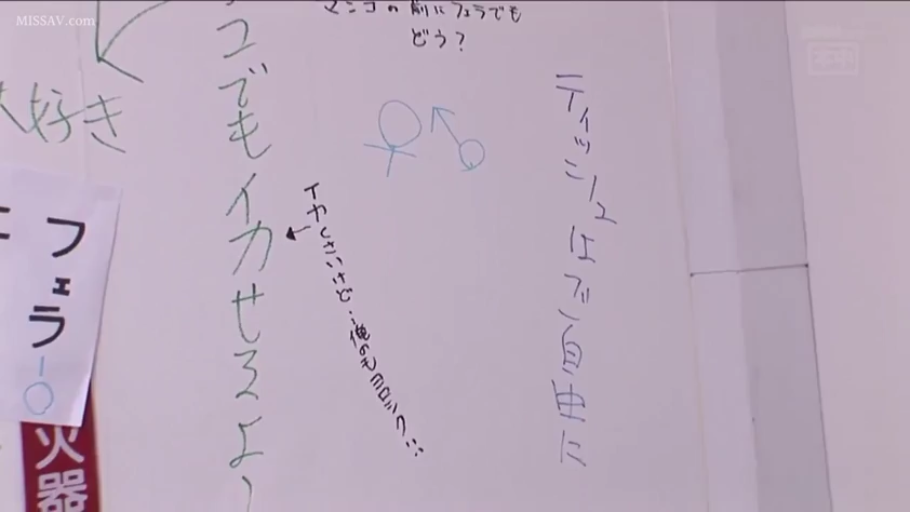 MISSAV.com
本中
マンコの前にフェラでも
どう？
ティッシュはご自由に
コでもイカせるよ～
イカしさいさど…俺のもヨロシク…
大好き
フェラ
火器